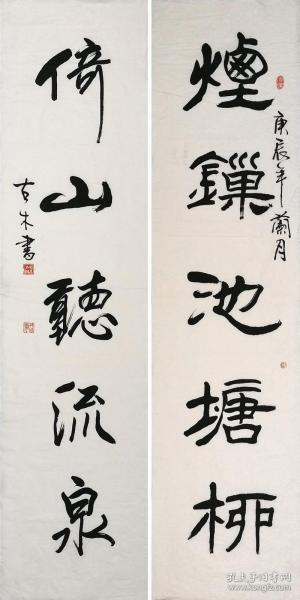 煙鏁池塘柳
庚辰年蘭月
倚山聽流泉
古木書
孔夫子旧书网